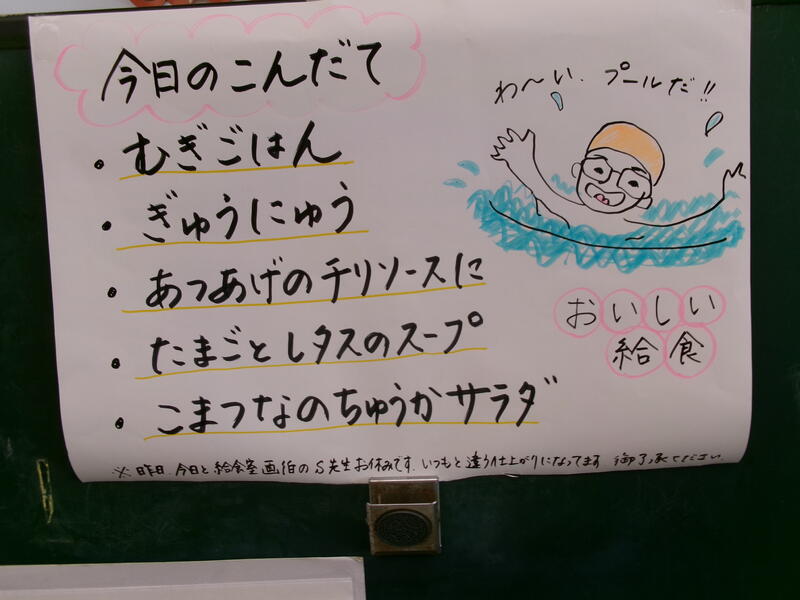 今日のこんだて
・むぎごはん
・ぎゅうにゅう
・あつあげのチリソースに
・たまごとレタスのスープ
・こまつなのちゅうかサラダ
わ〜い、プールだ!!
おいしい
給食
※昨日、今日と給食室画伯のS先生お休みです。いつもと違う仕上がりになってます 御了承ください。